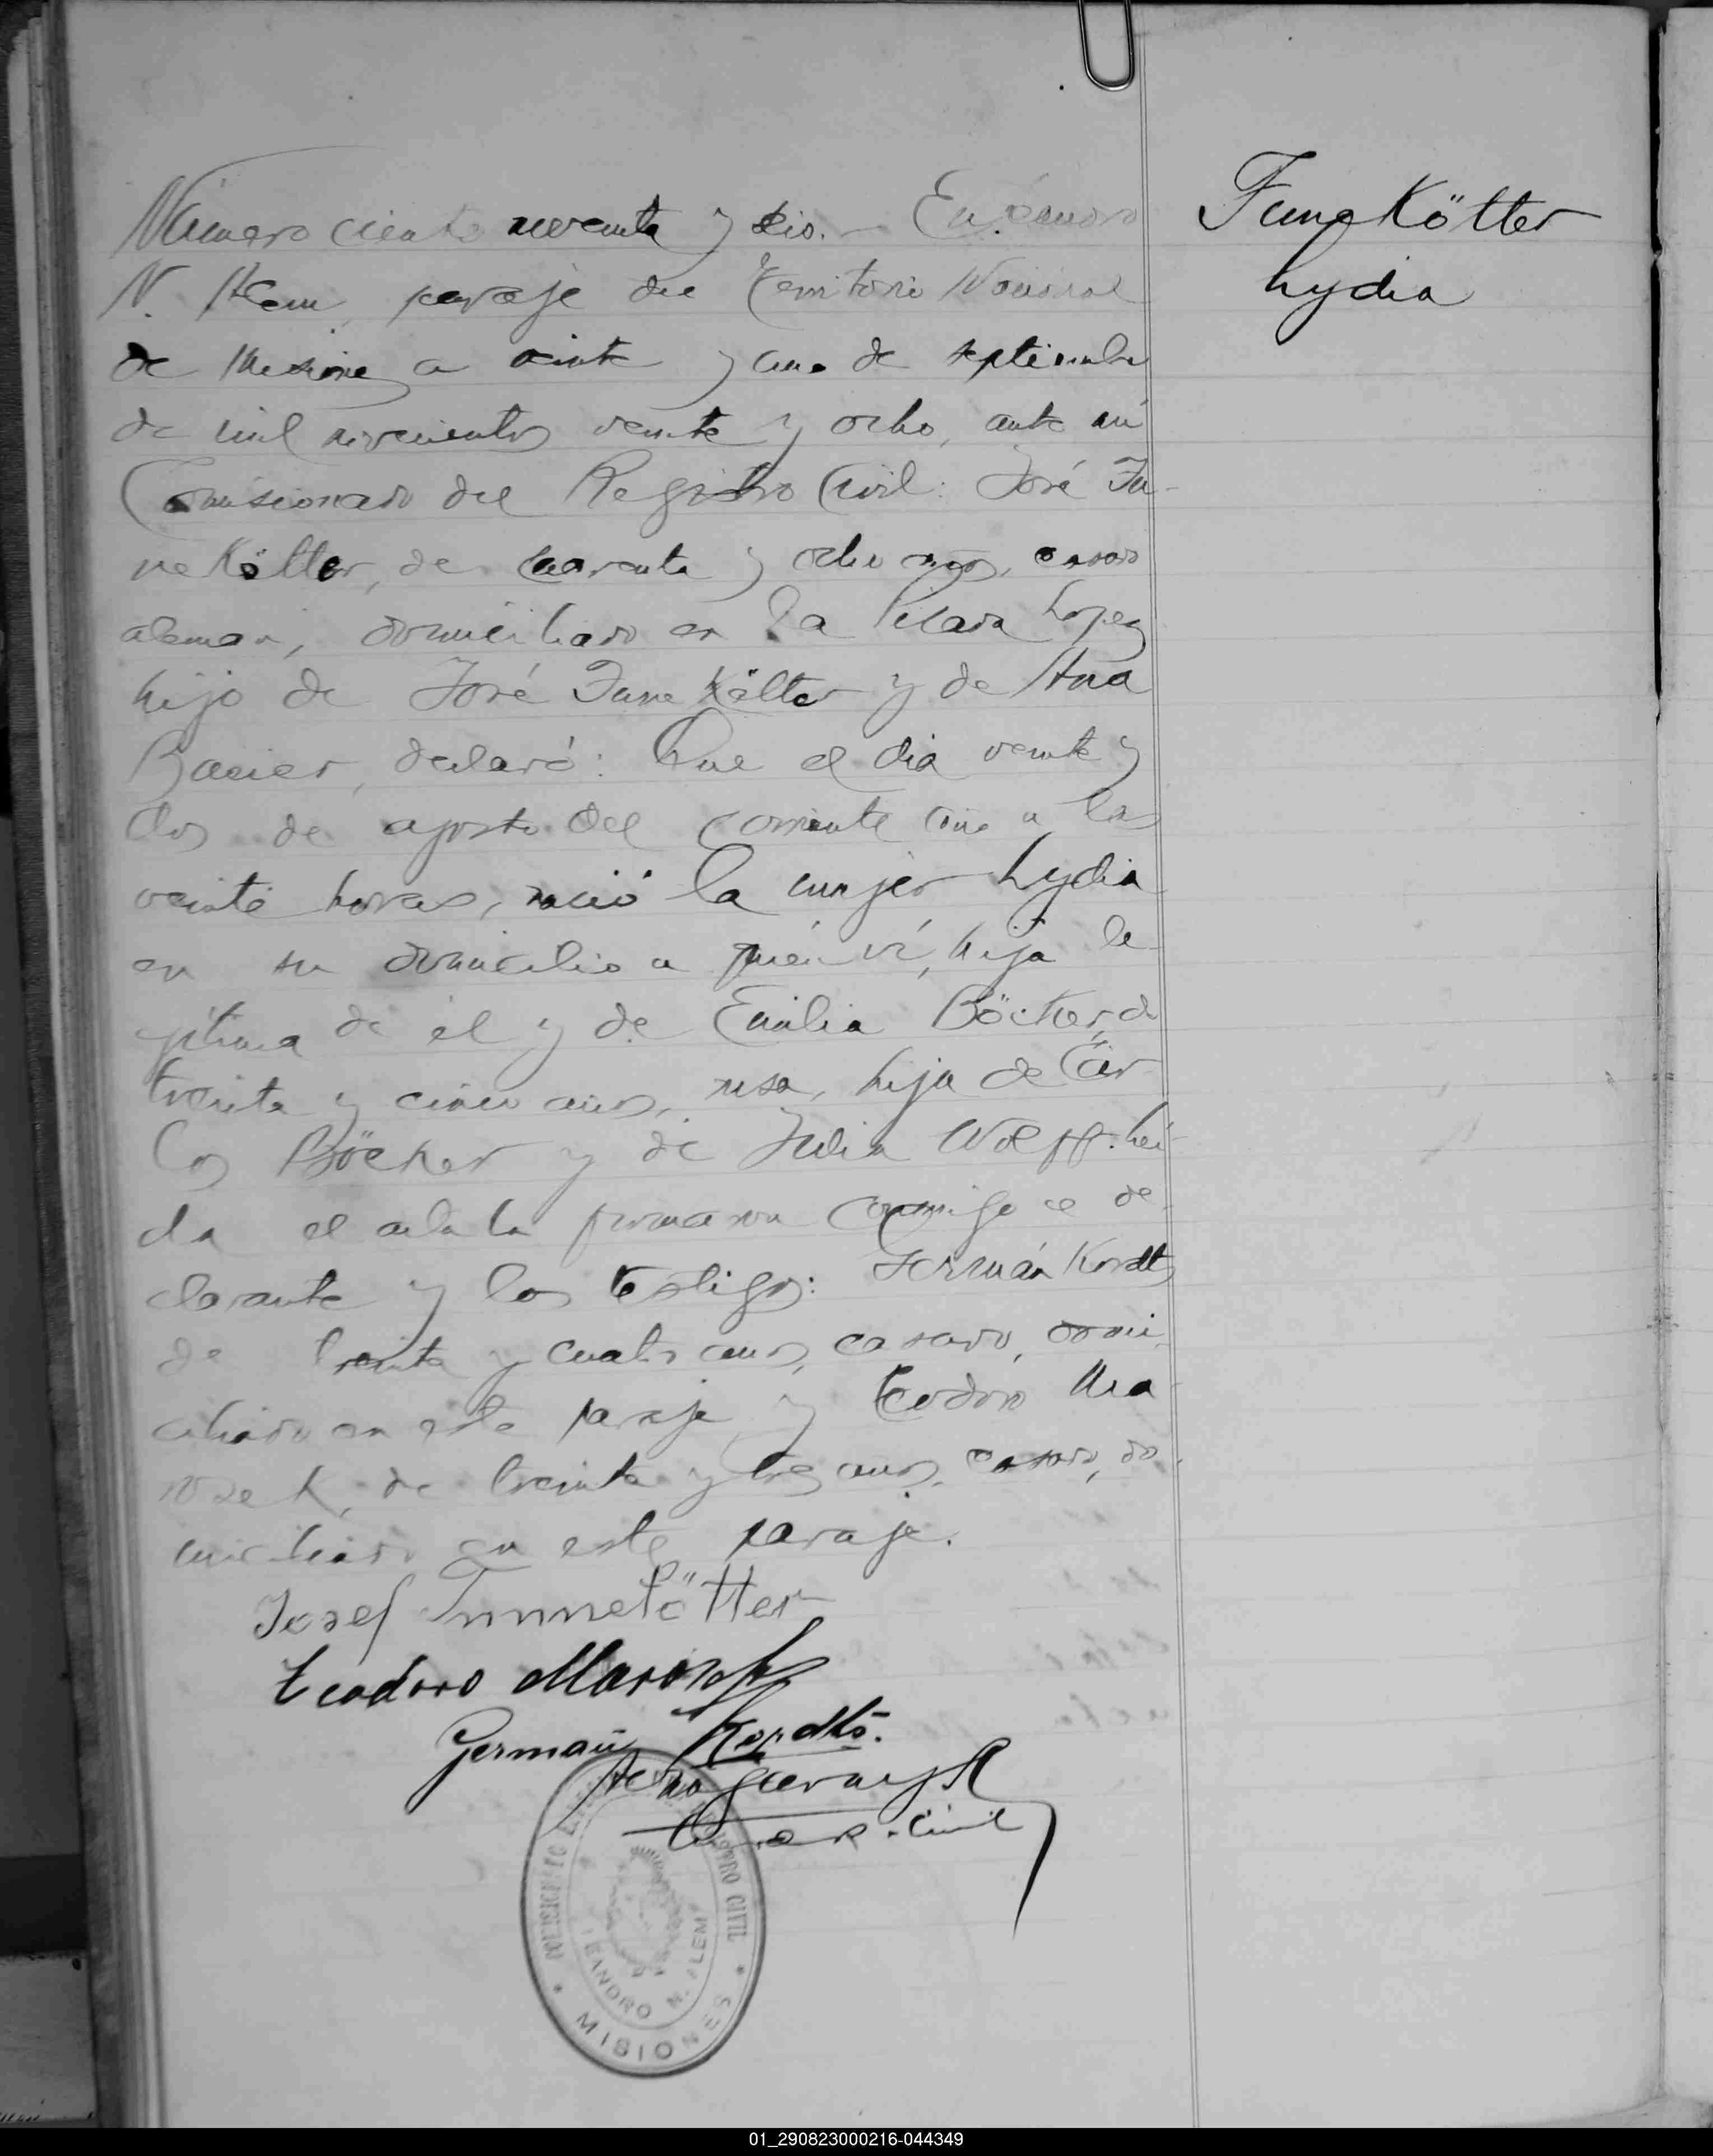 Número ciento noventa y seis.- En Leandro
N. Alem, paraje del Territorio Nacional
de Misiones a veinte y uno de septiembre
de mil novecientos veinte y ocho, ante mí
Comisionado del Registro Civil: José Fu-
nekötter, de cuarenta y ocho años, casado
aleman, domiciliado en La Picada Lopez
hijo de José Funekötter y de Ana
Bauer, declaró: Que el dia veinte y
dos de agosto del corriente año a las
veinte horas, nació la mujer Lydia
en su domicilio a quién ví, hija le-
gitima de él y de Emilia Böcker, de
treinta y cinco años, rusa, hija de Car-
los Böcker y de Julia Wolff. Leí-
da el acta la firmaron conmigo el de-
clarante y los testigos: Germán Kordts
de treinta y cuatro anos, casado, domi-
ciliado en este paraje y Teodoro Ma-
rozek, de treinta y tres anos, casado, do-
miciliado en este paraje.
Josef Funnekötter
Teodoro Marozek
German Kordts.
R. Civil
REGISTRO CIVIL
LEANDRO N. ALEM
MISIONES
Funekötter
Lydia
01_290823000216-044349